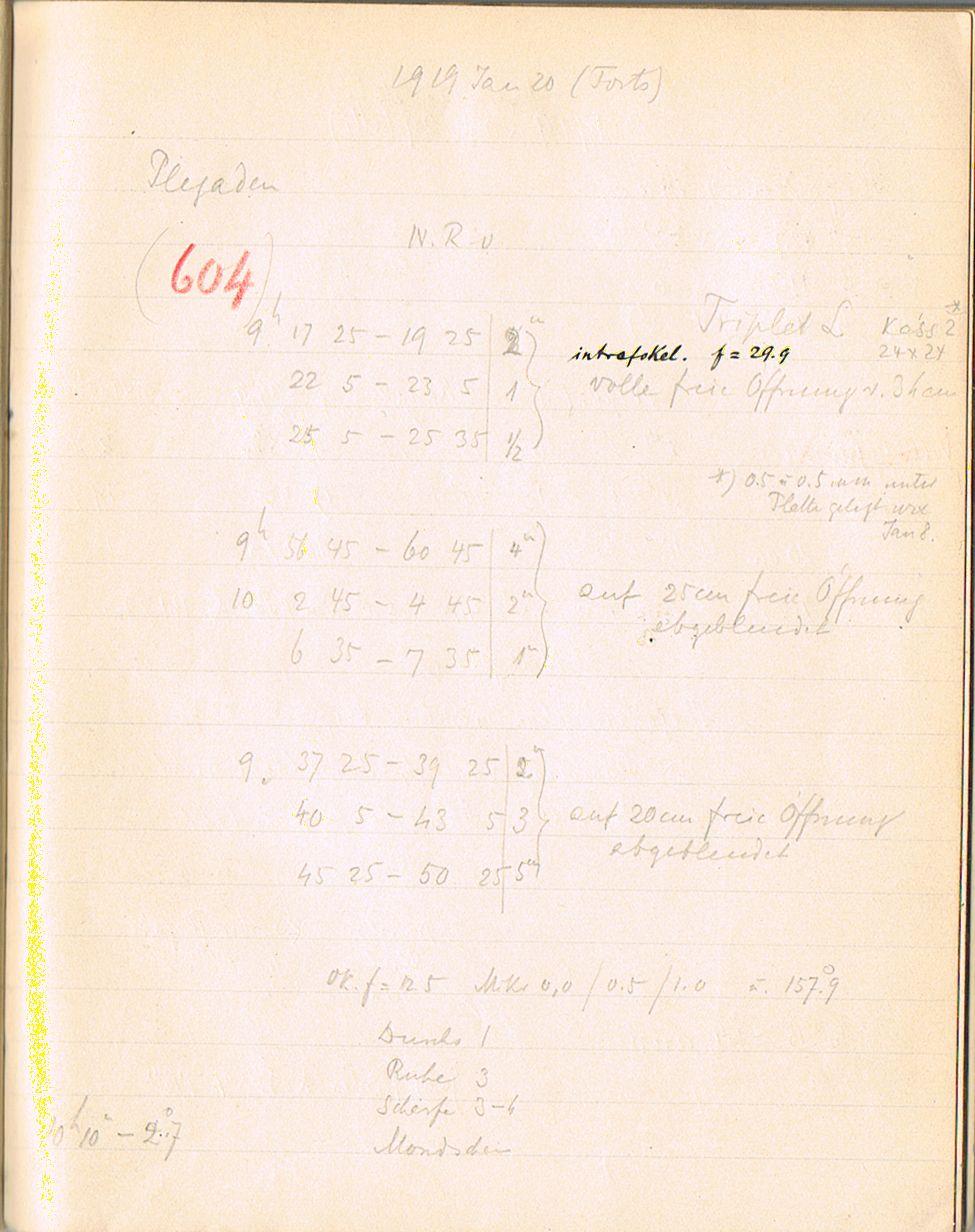 1919 Jan 20 (Forts)
Plejaden
N. R. v
(604)
Triplet L Kass 2 *
24 x 24
9h 17 25 – 19 25 | 2m
intrafokal. f = 29.9
22 5 – 23 5 | 1
volle freie Öffnung v. 34 cm
25 5 – 25 35 | 1/2
*) 0.5 mm unter
Platte gelegt
Jan 8.
9h 56 45 – 60 45 | 4m
10 2 45 – 4 45 | 2m
auf 25cm freie Öffnung
abgeblendet
6 35 – 7 35 | 1m
9. 37 25 – 39 25 | 2m
40 5 – 43 5 | 3
auf 20cm freie Öffnung
abgeblendet
45 25 – 50 25 | 5m
Ok. f = 12.5 Mikr 0,0 / 0.5 / 1.0 u. 157.°9
Durchs 1
Ruhe 3
Schärfe 3–4
10h 10m – 2.°7
Mondschein